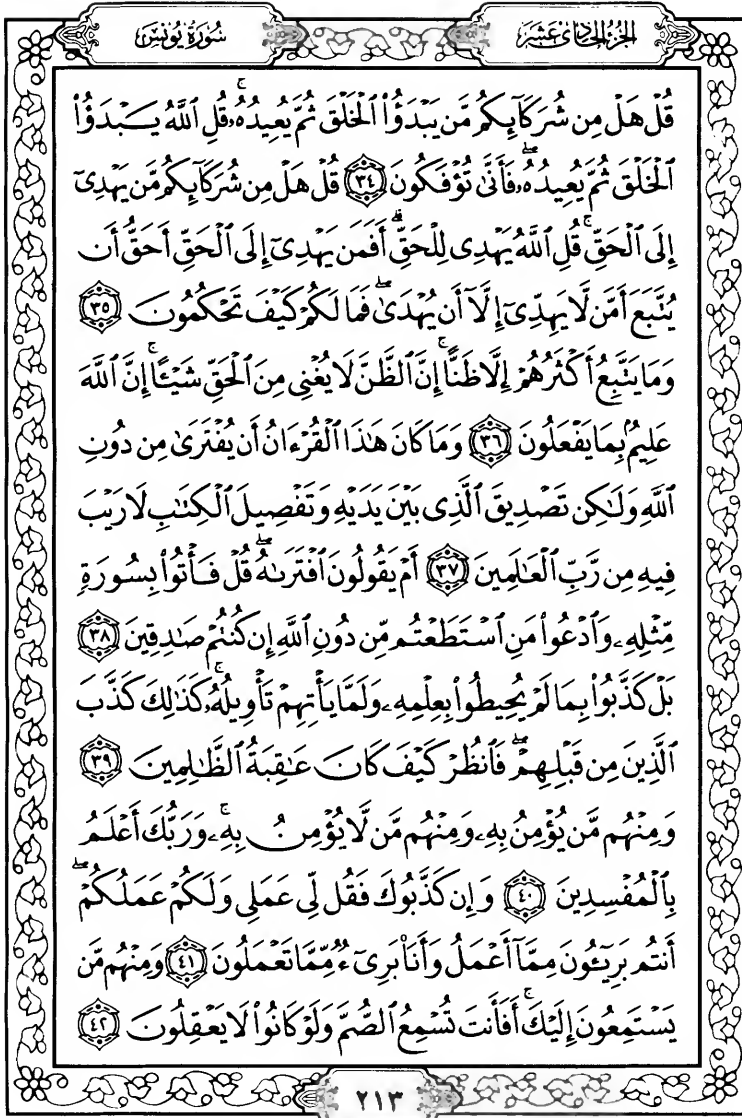 الجزء الحادى عشر
سورة يونس
قُلْ هَلْ مِن شُرَكَآئِكُم مَّن يَبْدَؤُا۟ ٱلْخَلْقَ ثُمَّ يُعِيدُهُۥ ۚ قُلِ ٱللَّهُ يَبْدَؤُا۟
ٱلْخَلْقَ ثُمَّ يُعِيدُهُۥ ۖ فَأَنَّىٰ تُؤْفَكُونَ ٣٤ قُلْ هَلْ مِن شُرَكَآئِكُم مَّن يَهْدِىٓ
إِلَى ٱلْحَقِّ ۚ قُلِ ٱللَّهُ يَهْدِى لِلْحَقِّ ۗ أَفَمَن يَهْدِىٓ إِلَى ٱلْحَقِّ أَحَقُّ أَن
يُتَّبَعَ أَمَّن لَّا يَهِدِّىٓ إِلَّآ أَن يُهْدَىٰ ۖ فَمَا لَكُمْ كَيْفَ تَحْكُمُونَ ٣٥
وَمَا يَتَّبِعُ أَكْثَرُهُمْ إِلَّا ظَنًّا ۚ إِنَّ ٱلظَّنَّ لَا يُغْنِى مِنَ ٱلْحَقِّ شَيْـًٔا ۚ إِنَّ ٱللَّهَ
عَلِيمٌۢ بِمَا يَفْعَلُونَ ٣٦ وَمَا كَانَ هَـٰذَا ٱلْقُرْءَانُ أَن يُفْتَرَىٰ مِن دُونِ
ٱللَّهِ وَلَـٰكِن تَصْدِيقَ ٱلَّذِى بَيْنَ يَدَيْهِ وَتَفْصِيلَ ٱلْكِتَـٰبِ لَا رَيْبَ
فِيهِ مِن رَّبِّ ٱلْعَـٰلَمِينَ ٣٧ أَمْ يَقُولُونَ ٱفْتَرَىٰهُ ۖ قُلْ فَأْتُوا۟ بِسُورَةٍ
مِّثْلِهِۦ وَٱدْعُوا۟ مَنِ ٱسْتَطَعْتُم مِّن دُونِ ٱللَّهِ إِن كُنتُمْ صَـٰدِقِينَ ٣٨
بَلْ كَذَّبُوا۟ بِمَا لَمْ يُحِيطُوا۟ بِعِلْمِهِۦ وَلَمَّا يَأْتِهِمْ تَأْوِيلُهُۥ ۚ كَذَٰلِكَ كَذَّبَ
ٱلَّذِينَ مِن قَبْلِهِمْ ۖ فَٱنظُرْ كَيْفَ كَانَ عَـٰقِبَةُ ٱلظَّـٰلِمِينَ ٣٩
وَمِنْهُم مَّن يُؤْمِنُ بِهِۦ وَمِنْهُم مَّن لَّا يُؤْمِنُ بِهِۦ ۚ وَرَبُّكَ أَعْلَمُ
بِٱلْمُفْسِدِينَ ٤٠ وَإِن كَذَّبُوكَ فَقُل لِّى عَمَلِى وَلَكُمْ عَمَلُكُمْ ۖ
أَنتُم بَرِيٓـُٔونَ مِمَّآ أَعْمَلُ وَأَنَا۠ بَرِىٓءٌ مِّمَّا تَعْمَلُونَ ٤١ وَمِنْهُم مَّن
يَسْتَمِعُونَ إِلَيْكَ ۚ أَفَأَنتَ تُسْمِعُ ٱلصُّمَّ وَلَوْ كَانُوا۟ لَا يَعْقِلُونَ ٤٢
٢١٣